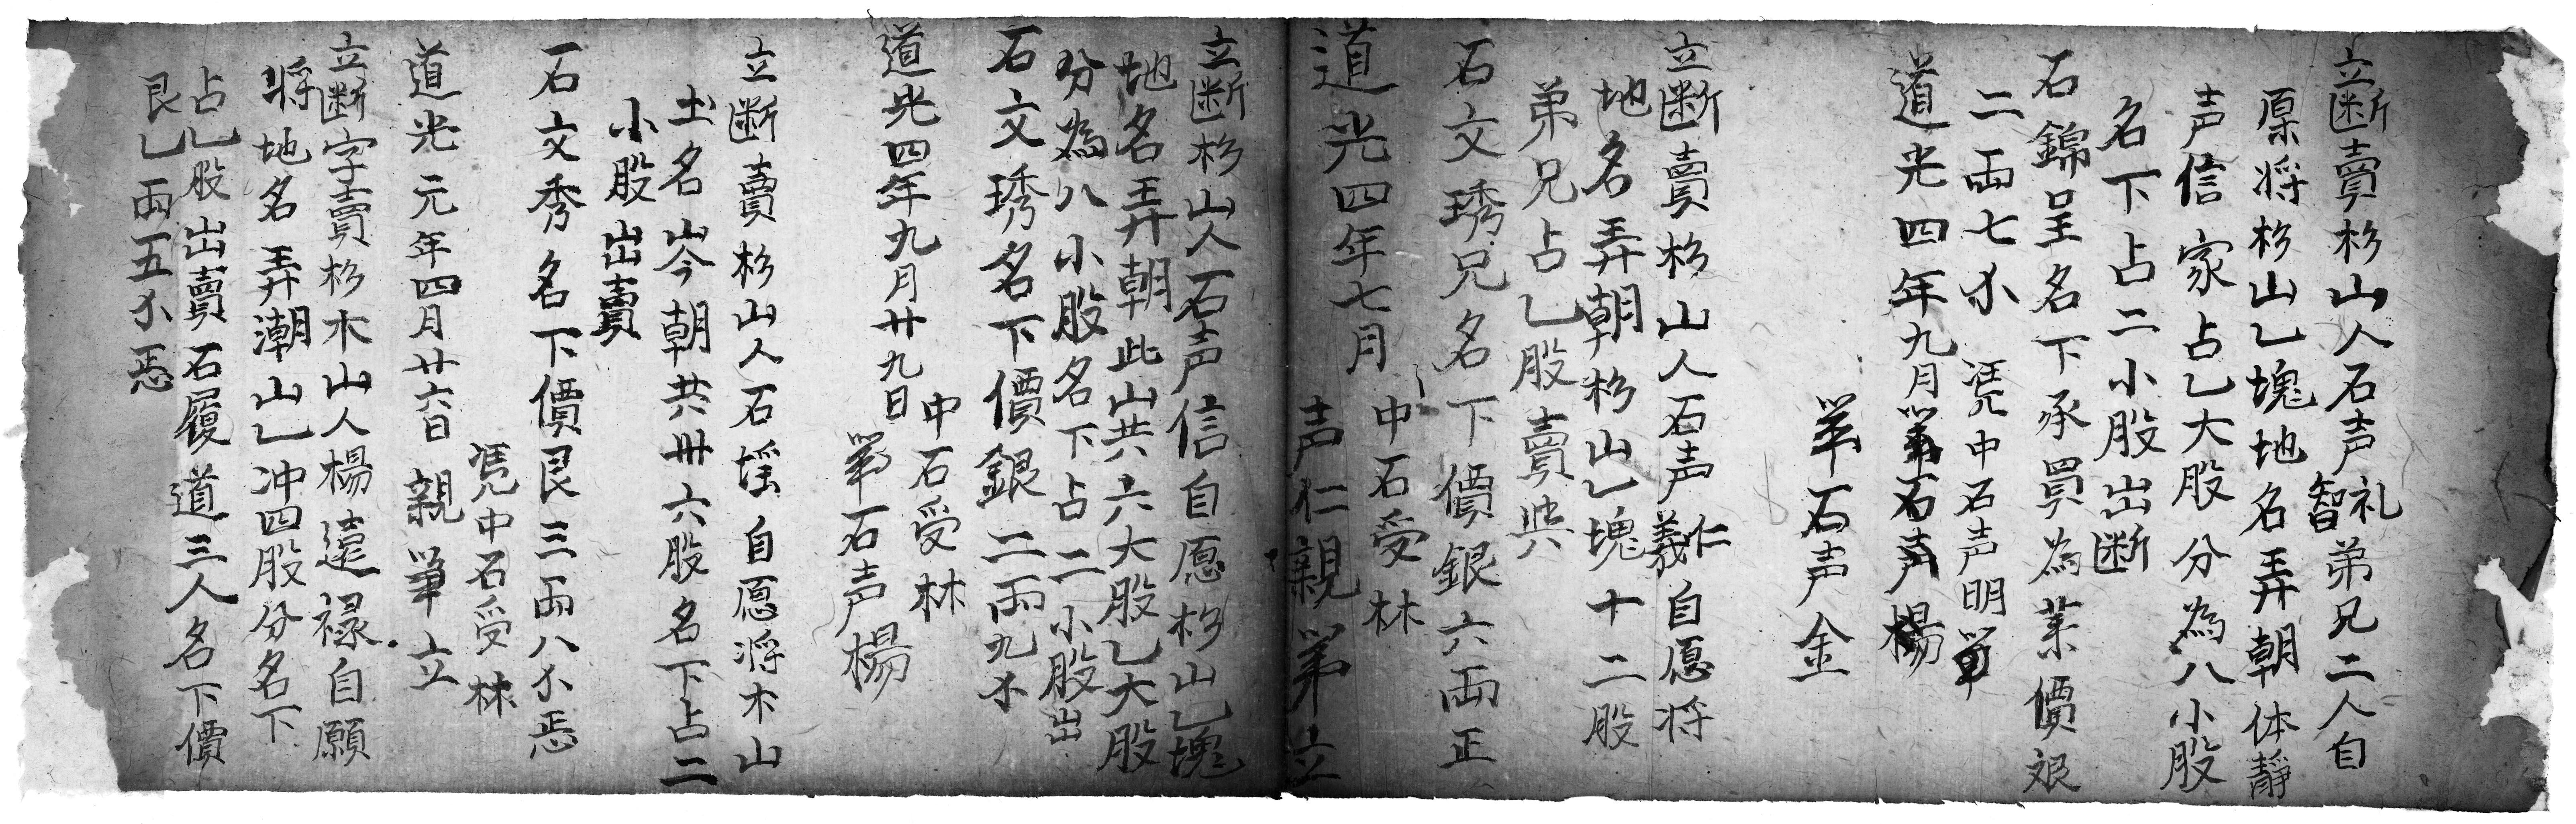 立断賣杉山人石声礼智弟兄二人自
愿将杉山乙塊地名弄朝体靜
声信家占乙大股分為八小股
名下占二小股出断
石錦呈名下承買為業價艮
二両七小　凭中石声明筆
道光四年九月筆石声楊
筆石声金
立断賣杉山人石声仁義自愿将
地名弄朝杉山乙塊十二股
弟兄占乙股賣與
石文琇兄名下價銀六両正
中石受林
道光四年七月　声仁親筆立
立断杉山人石声信自愿杉山乙塊
地名弄朝此山共六大股乙大股
分為八小股名下占二小股出
石文琇名下價銀二両九小
中石受林
道光四年九月廿九日　筆石声楊
立断賣杉山人石瑶自愿将木山
土名岑朝共卅六股名下占二
小股出賣
石文秀名下價艮三両八小恁
凭中石受林
道光元年四月廿六日　親筆立
立断字賣杉木山人楊遠禄自願
将地名弄潮山乙冲四股分名下
占乙股出賣石履道三人名下價
艮乙両五小恁